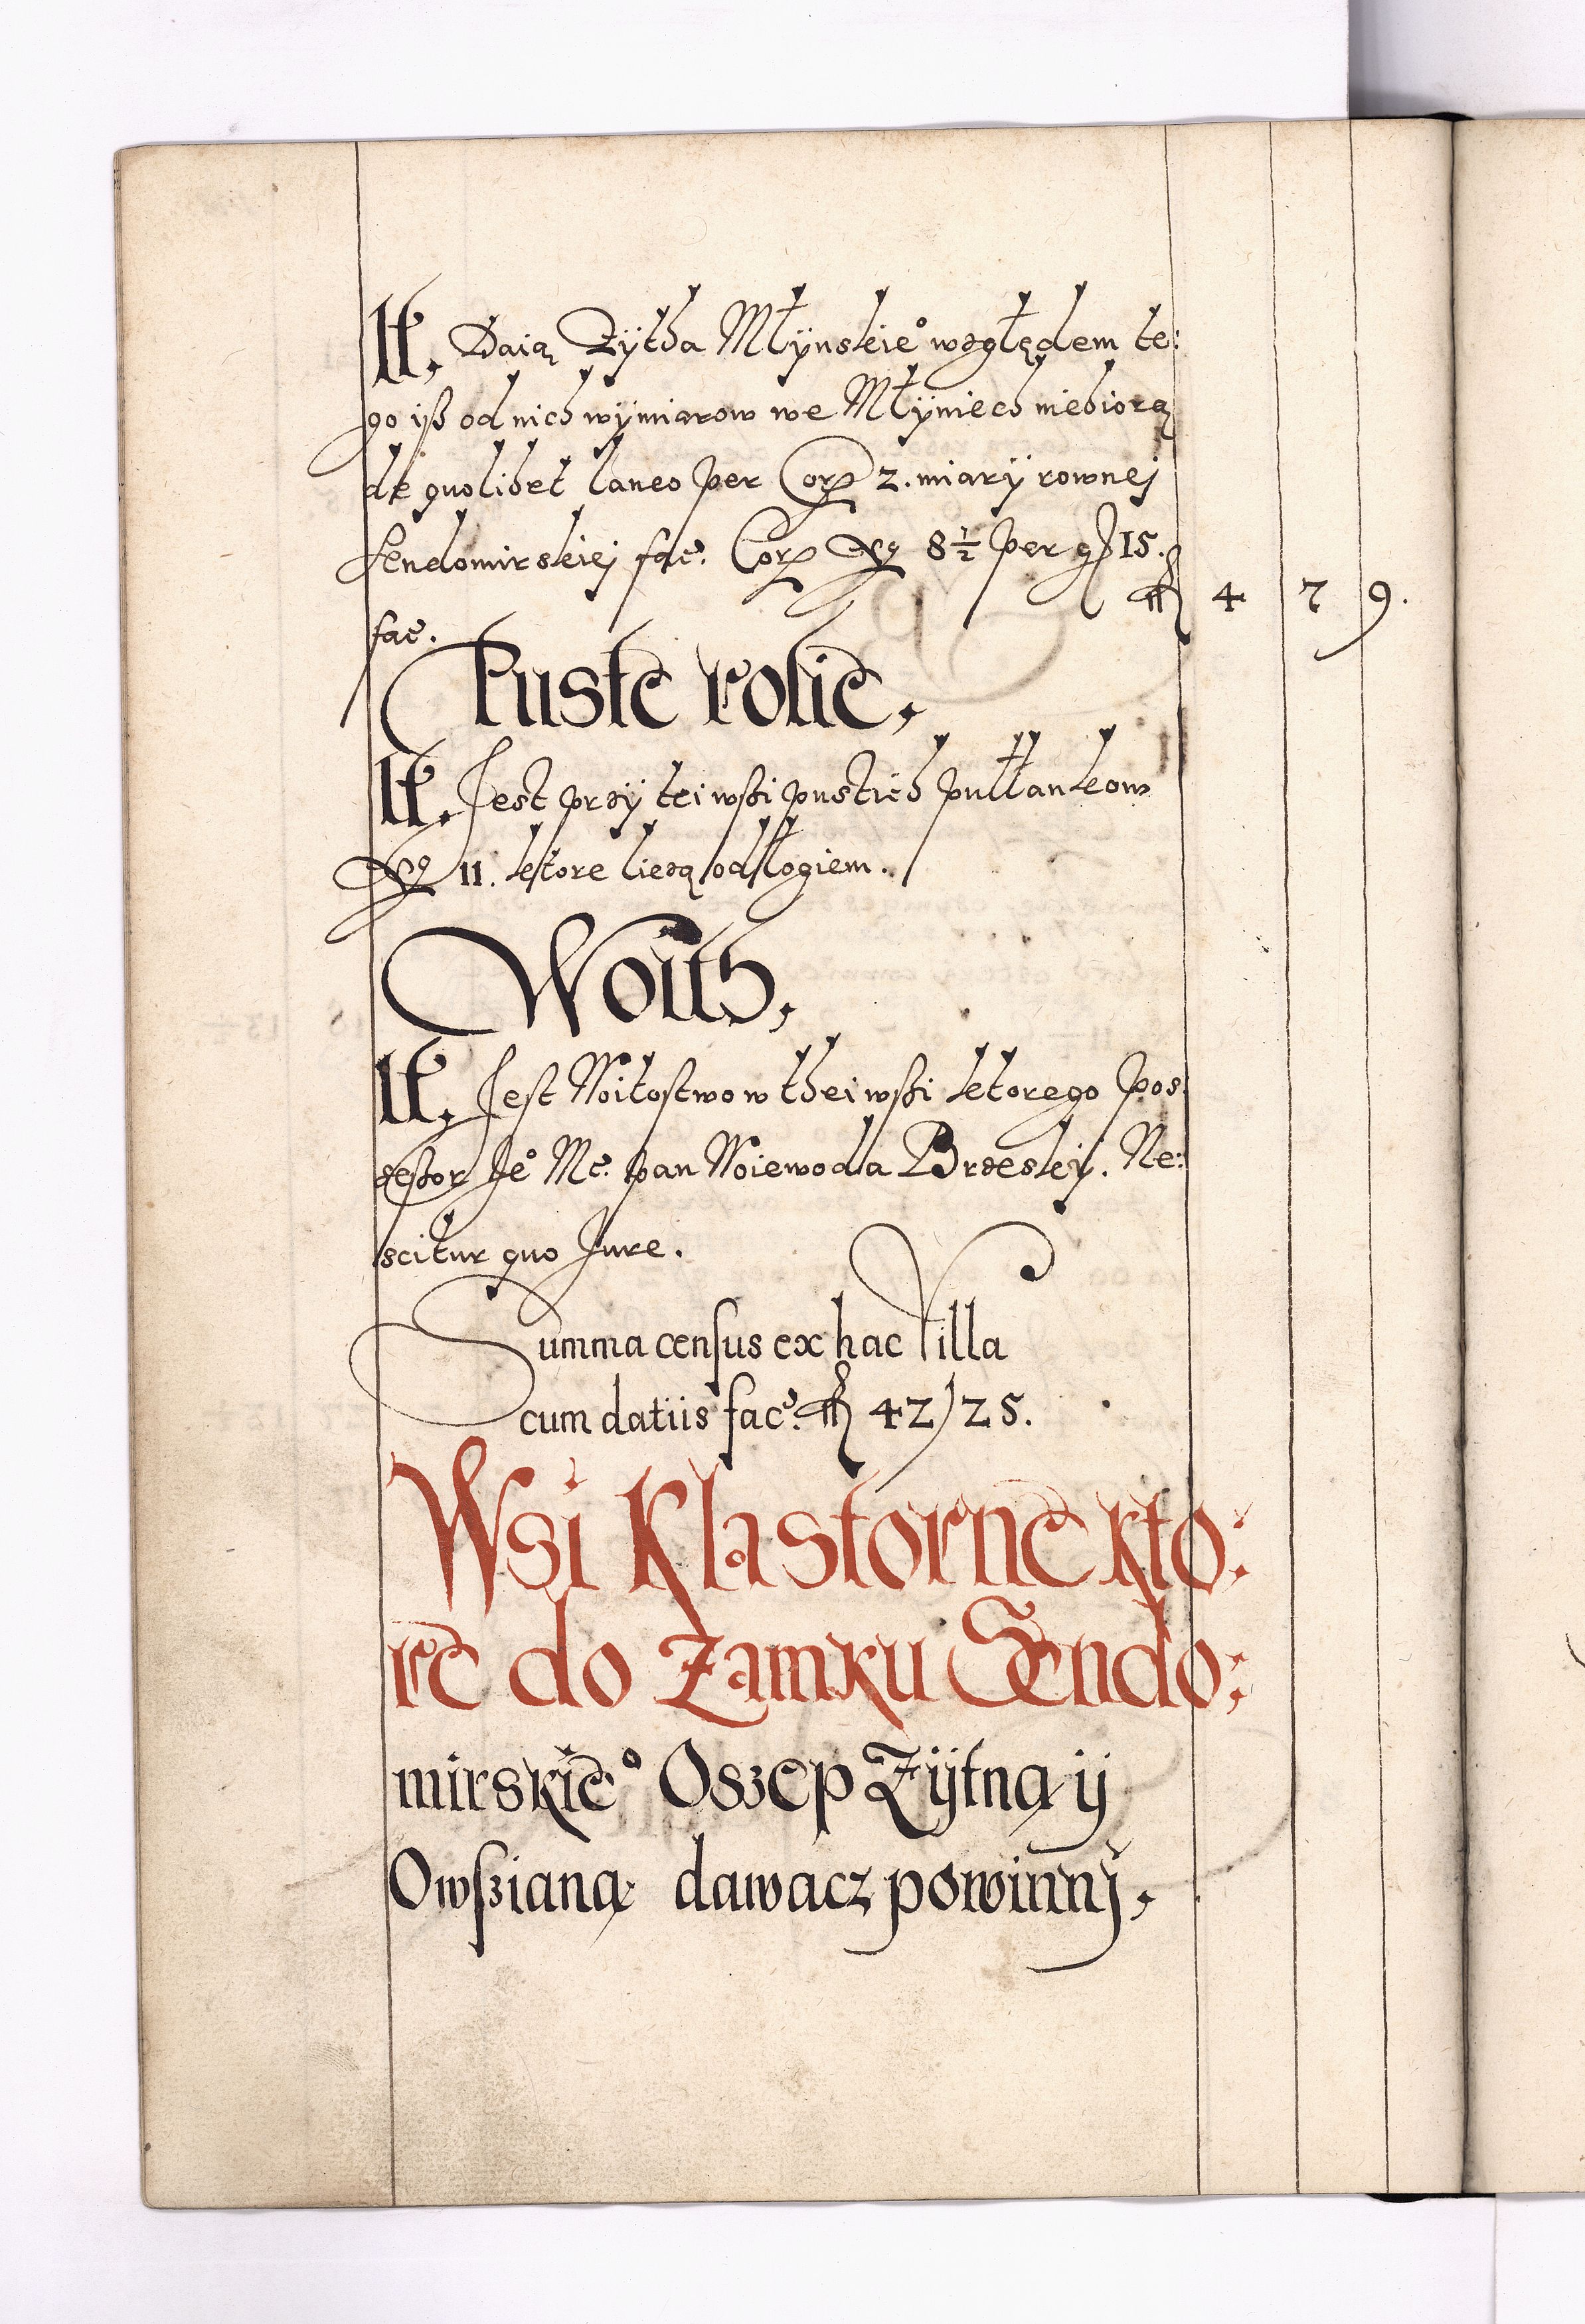 It. Daią Żÿtha Młÿnskie° wzgłędem te:
go iß od nich wÿmiarow we Młÿniech niebiorą
de quolibet laneo per Cor. 2. miarÿ rownej
Sendomirskiej fac. Cor. Nº 8½ per gr 15.
fac. fl 4 7 9.
Puste rolie,
It. Jest przÿ tei wßi pustich pułłankow
Nº 11. ktore liezą odłogiem.
Woith,
It. Jest Woitostwo w thei wßi ktorego Pos:
seßor Je° Mc. pan Woiewoda Brzeskij. Ne:
scitur quo Jure.
Summa census ex hac Villa
cum datiis fac. fl 42/25.
Wsi Klastorne kto:
re do Zamku Sendo:
mirskie° Oszep Zÿtną ÿ
Owßianą dawacz powinnÿ,